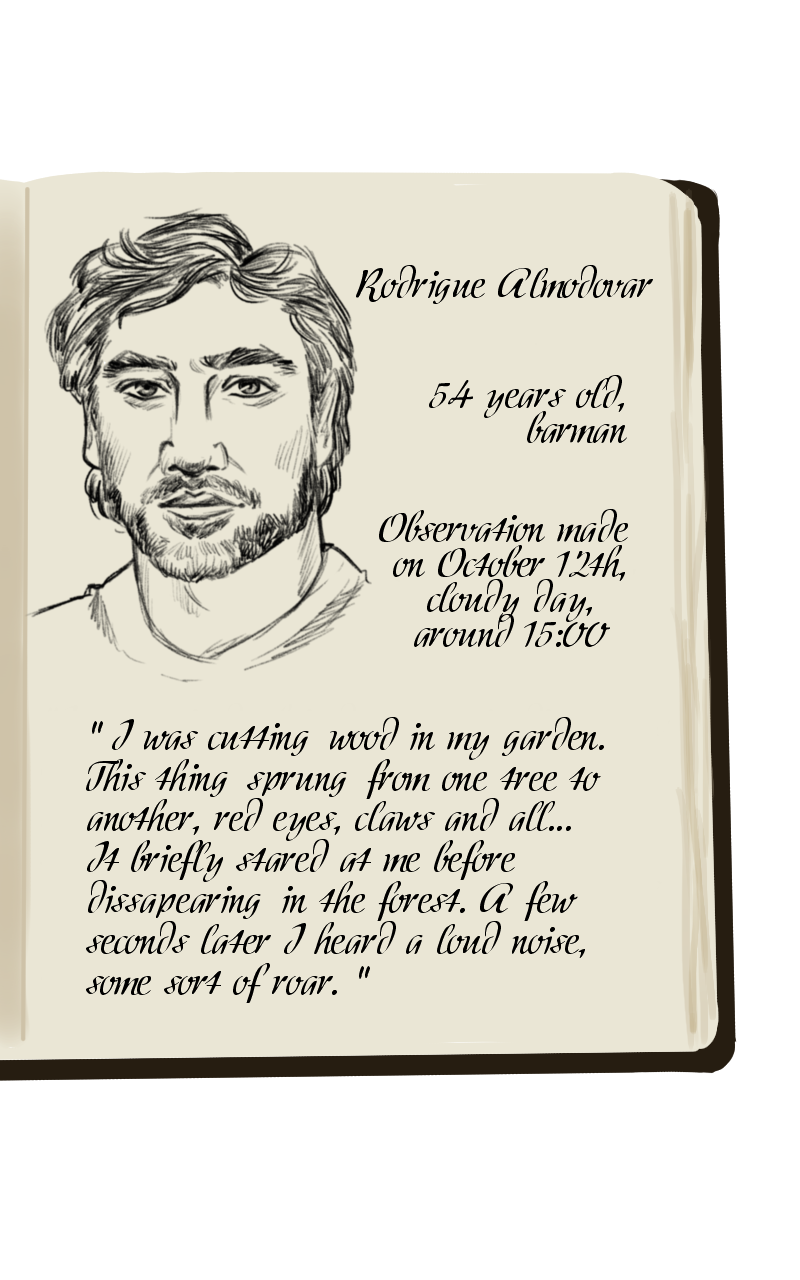 Rodrigue Almodovar
54 years old,
barman
Observation made
on October 12th,
cloudy day,
around 15:00
" I was cutting wood in my garden.
This thing sprung from one tree to
another, red eyes, claws and all...
It briefly stared at me before
dissapearing in the forest. A few
seconds later I heard a loud noise,
some sort of roar. "